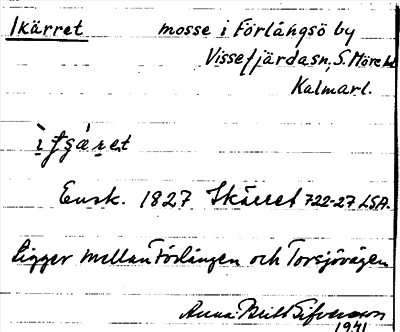 Ikärret mosse i Förlångsö by
Vissefjärdasn, S. Möre hd
Kalmarl.
Ensk. 1827 Ikärret 722-27 LSA.
ligger mellan Förlången och Torsjövägen
Anna Britt
1941